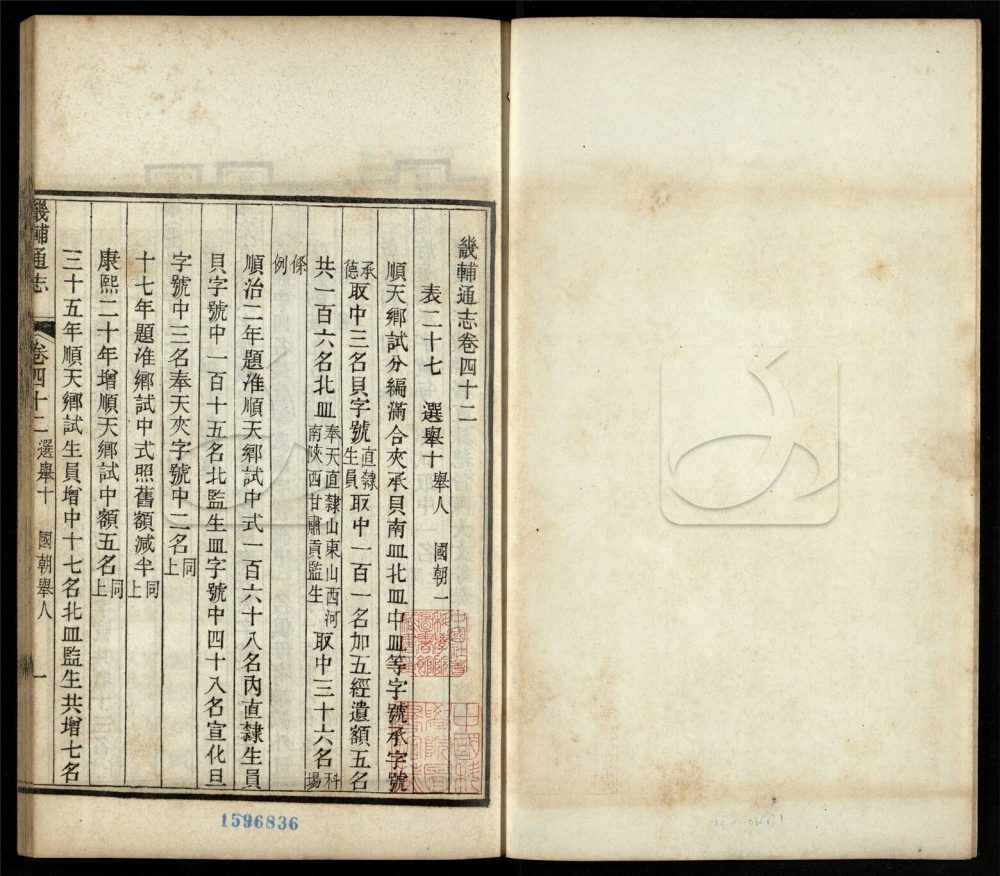 畿輔通志卷四十二
表二十七 選舉十 舉人 國朝一
順天鄉試分編滿合夾承貝南皿北皿中皿等字號承字號
承德取中三名貝字號直隸生員取中一百一名加五經遺額五名
共一百六名北皿奉天直隸山東山西河南陝西甘肅貢監生取中三十六名科場
條例
順治二年題准順天鄉試中式一百六十八名內直隸生員
貝字號中一百十五名北監生皿字號中四十八名宣化旦
字號中三名奉天夾字號中二名同上
十七年題准鄉試中式照舊額減半同上
康熙二十年增順天鄉試中額五名同上
三十五年順天鄉試生員增中十七名北皿監生共增七名
畿輔通志 卷四十二 選舉十 國朝舉人 一
1596836